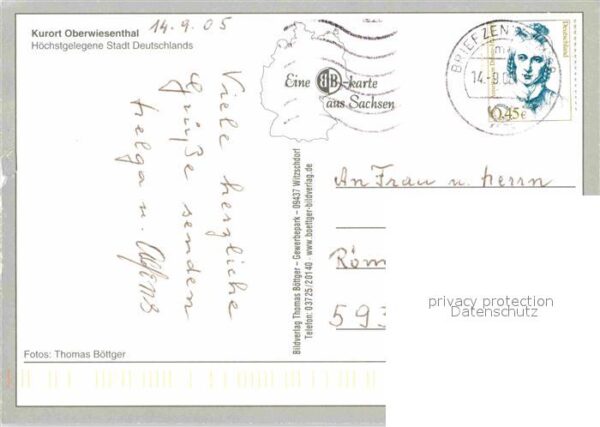 Kurort Oberwiesenthal
Höchstgelegene Stadt Deutschlands
14.9.05
Viele herzliche
Grüße senden
Helga u.
Eine BB-karte
aus Sachsen
BRIEFZENTRUM
14.-9.0
Deutschland
0,45€
Bildverlag Thomas Böttger – Gewerbepark – 09437 Witzschdorf
Telefon: 03725/20140 · www.boettger-bildverlag.de
An Frau u. Herrn
Röm
593
privacy protection
Datenschutz
Fotos: Thomas Böttger